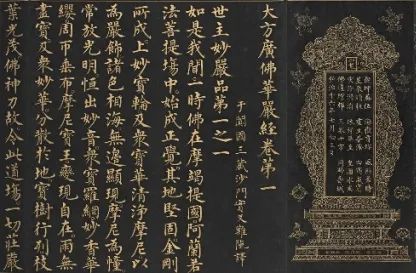 大方廣佛華嚴經卷第一
于闐國三藏沙門實叉難陀譯
世主妙嚴品第一之一
如是我聞一時佛在摩竭提國阿蘭若
法菩提場中始成正覺其地堅固金剛
所成上妙寶輪及衆寶華清淨摩尼以
為嚴飾諸色相海無邊顯現摩尼為幢
常放光明恒出妙音衆寶羅網妙香華
纓周帀垂布摩尼寶王變現自在雨無
盡寶及衆妙華分散於地寶樹行列枝
葉光茂佛神力故令此道場一切莊嚴